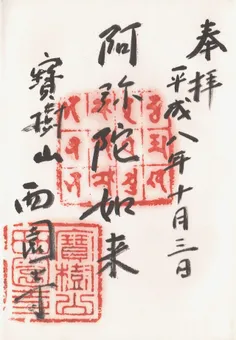 奉拝
平成八年十月三日
阿弥陀如来
寳樹山
西園寺
寶樹山